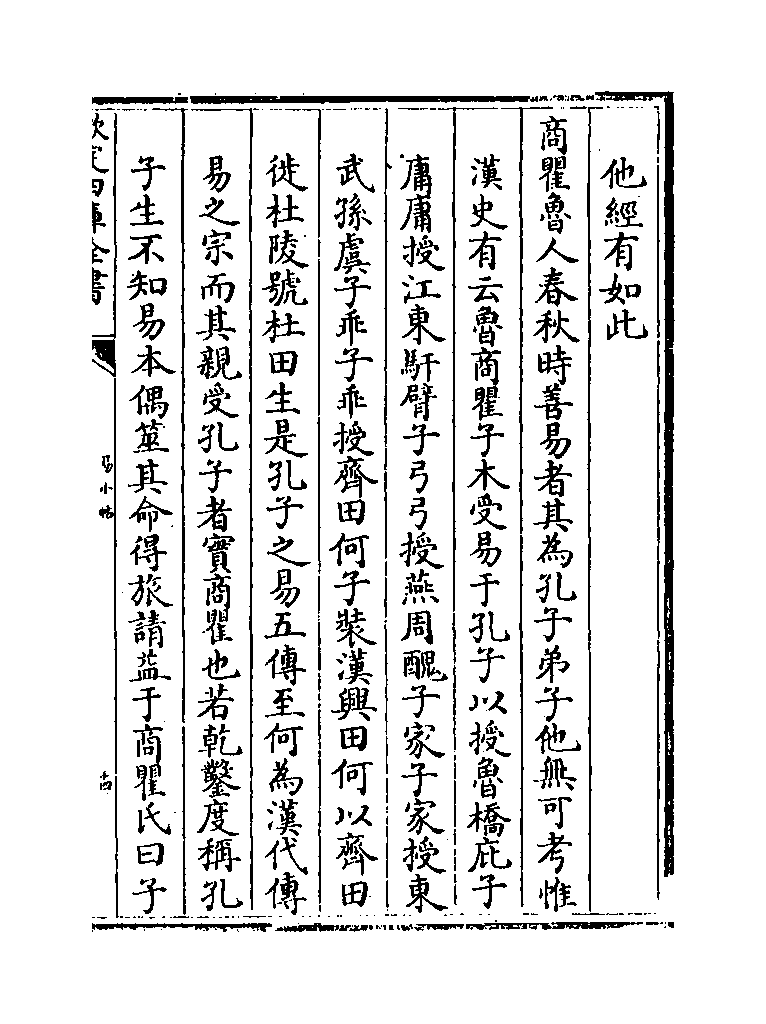 他經有如此
商瞿魯人春秋時善易者其為孔子弟子他無可考惟
漢史有云魯商瞿子木受易于孔子以授魯橋庇子
庸庸授江東馯臂子弓弓授燕周醜子家子家授東
武孫虞子乘子乘授齊田何子装漢興田何以齊田
徙杜陵號杜田生是孔子之易五傳至何為漢代傳
易之宗而其親受孔子者實商瞿也若乾鑿度稱孔
子生不知易本偶筮其命得旅請益于商瞿氏曰子
欽定四庫全書
易小帖
十四